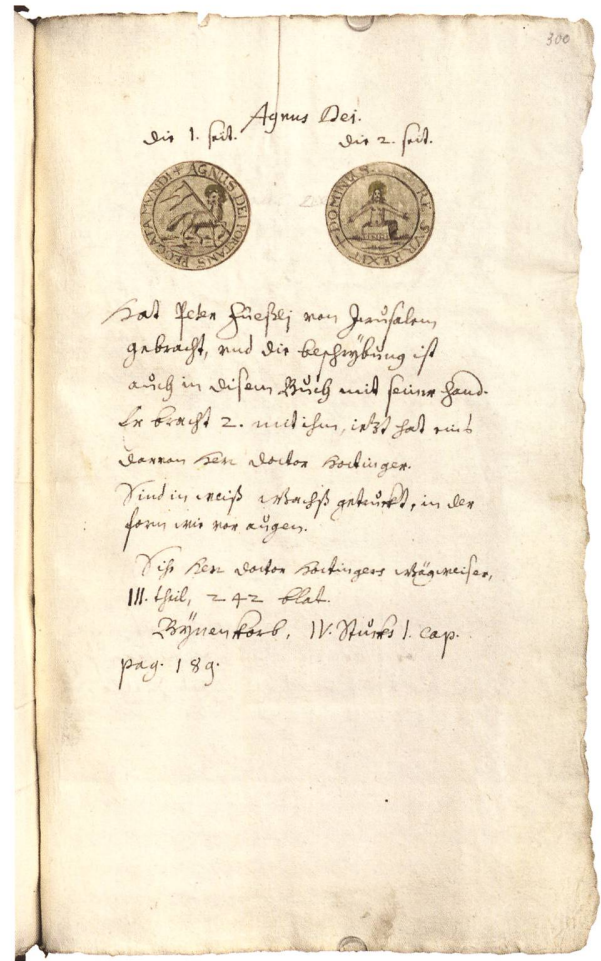 300
Agnus Dei.
die 1. seit. die 2. seit.
AGNUS DEI PORTANS PECCATA MUNDI +
DOMINUS RESURREXIT
Hat Peter Füeßlj von Jerusalem
gebracht, vnd die beschrÿbung ist
auch in disem Buch mit seiner hand.
Er bracht 2. mit ihm, ietzt hat eins
darvon Herr Doctor Hottinger.
Sind in weiß Wachß getruckt, in der
form wie vor augen.
Sihe Herr Doctor Hottingers Wägweiser,
III. theil, 242 blat.
Bÿnenkorb, IV. Stucks 1. cap.
pag. 189.